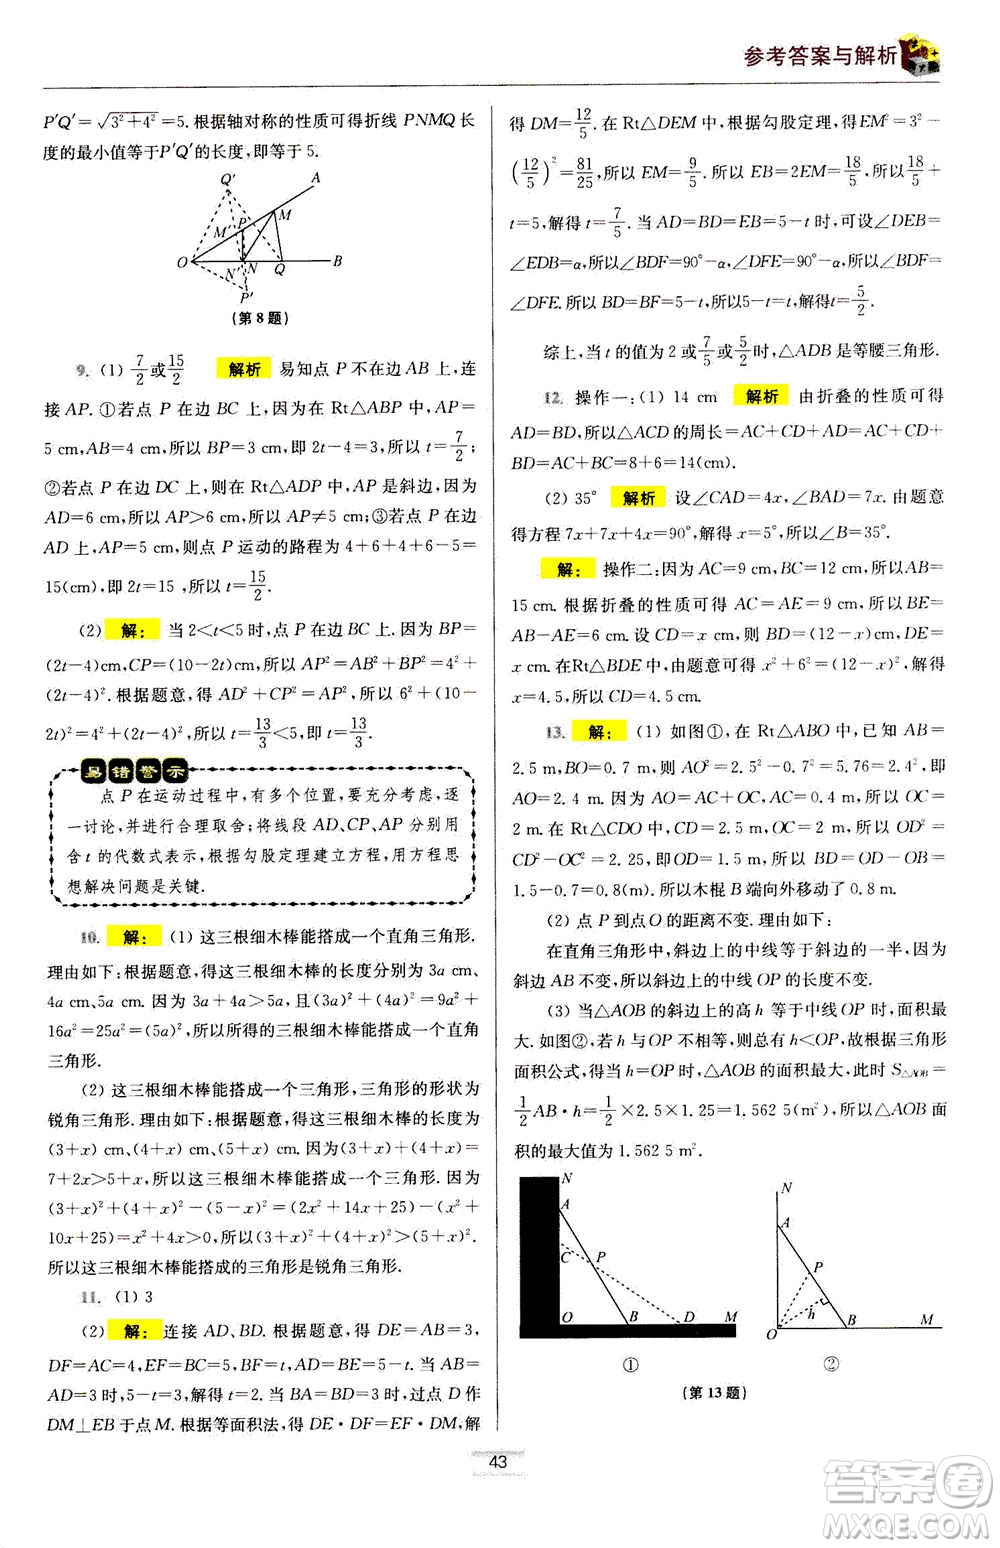 参考答案与解析
P′Q′=√(3²+4²)=5. 根据轴对称的性质可得折线 PNMQ 长
度的最小值等于P′Q′的长度,即等于 5.
Q′
A
M
P
M′
O
N′
N
Q
B
P′
(第 8 题)
9. (1) 7/2或15/2 解析 易知点 P 不在边 AB 上,连
接 AP. ①若点 P 在边 BC 上,在 Rt△ABP 中,AP=
5 cm,AB=4 cm,所以 BP=3 cm,即 2t-4=3,所以 t=7/2;
②若点 P 在边 DC 上,在 Rt△ADP 中,AP 是斜边,因为
AD=6 cm,所以 AP>6 cm,所以 AP≠5 cm;③若点 P 在边
AD 上,AP=5 cm,则点 P 运动的路程为 4+6+4+6-5=
15(cm),即 2t=15,所以 t=15/2.
(2) 解: 当 2<t<5 时,点 P 在边 BC 上. 因为 BP=
(2t-4)cm,CP=(10-2t)cm,所以 AP²=AB²+BP²=4²+
(2t-4)². 根据题意,得 AD²+CP²=AP²,所以 6²+(10-
2t)²=4²+(2t-4)²,所以 t=13/3<5,所以 t=13/3.
易错警示
点 P 在运动过程中,有多个位置,要充分考虑,逐
一讨论,并进行合理取舍;将线段 AD、CP、AP 分别用
含 t 的代数式表示,根据勾股定理建立方程,用方程思
想解决问题是关键.
10. 解: (1) 这三根细木棒能搭成一个直角三角形.
理由如下:根据题意,得这三根细木棒的长度分别为 3a cm、
4a cm、5a cm. 因为 3a+4a>5a,所以能搭成三角形. 因为 9a²+
16a²=25a²(a>0),所以所得的三根细木棒能搭成一个直角
三角形.
(2) 这三根细木棒能搭成一个三角形,三角形的形状为
锐角三角形. 理由如下:根据题意,得这三根细木棒的长度为
(3+x) cm、(4+x) cm、(5+x) cm. 因为 3+x+4+x=
7+2x>5+x,所以这三根细木棒能搭成一个三角形. 因为
(3+x)²+(4+x)²-(5-x)²=(2x²+14x+25)-(x²+
10x+25)=x²+4x>0,所以(3+x)²+(4+x)²>(5+x)².
所以这三根细木棒能搭成的三角形是锐角三角形.
11. (1) 3
(2) 解: 连接 AD、BD. 根据题意,得 DE=AB=3,
DF=AC=4,EF=BC=5,BF=t,AD=BE=5-t. 当 AB=
AD=3 时,5-t=3,解得 t=2. 当 BA=BD=3 时,过点 D 作
DM⊥EB 于点 M. 根据等面积法,得 DE·DF=EF·DM,解
得 DM=12/5. 在 Rt△DEM 中,根据勾股定理,得EM²=3²-
(12/5)²=81/25,所以 EM=9/5. 所以 EB=2EM=18/5. 所以18/5+
t=5,解得 t=7/5. 当 AD=BD=EB=5-t 时,可设∠DEB=
∠EDB=α,所以∠BDF=90°-α,∠DFE=90°-α,所以∠BDF=
∠DFE. 所以 BD=BF=5-t,所以5-t=t,解得t=5/2.
综上,当 t 的值为 2 或7/5或5/2时,△ADB 是等腰三角形.
12. 操作一:(1) 14 cm 解析 由折叠的性质可得
AD=BD,所以△ACD 的周长=AC+CD+AD=AC+CD+
BD=AC+BC=8+6=14(cm).
(2) 35° 解析 设∠CAD=4x,∠BAD=7x. 由题意
得方程 7x+7x+4x=90°,解得 x=5°,所以∠B=35°.
解: 操作二:因为 AC=9 cm,BC=12 cm,所以 AB=
15 cm. 根据折叠的性质可得 AC=AE=9 cm,所以 BE=
AB-AE=6 cm. 设 CD=x cm,则 BD=(12-x)cm,DE=
x cm. 在Rt△BDE 中,由题意可得 x²+6²=(12-x)²,解得
x=4.5,所以 CD=4.5 cm.
13. 解: (1) 如图①,在 Rt△ABO 中,已知 AB=
2.5 m,BO=0.7 m,则 AO²=2.5²-0.7²=5.76=2.4²,即
AO=2.4 m. 因为 AO=AC+OC,AC=0.4 m,所以 OC=
2 m. 在 Rt△CDO 中,CD=2.5 m,OC=2 m,所以 OD²=
CD²-OC²=2.25,即OD=1.5 m,所以 BD=OD-OB=
1.5-0.7=0.8(m). 所以木棍 B 端向外移动了 0.8 m.
(2) 点 P 到点 O 的距离不变. 理由如下:
在直角三角形中,斜边上的中线等于斜边的一半,因为
斜边 AB 不变,所以斜边上的中线 OP 的长度不变.
(3) 当△AOB 的斜边上的高 h 等于中线 OP 时,面积最
大. 如图②,若 h 与 OP 不相等,则总有 h<OP,故根据三角形
面积公式,得当 h=OP 时,△AOB 的面积最大,此时 S△AOB=
1/2 AB·h=1/2×2.5×1.25=1.562 5(m²),所以△AOB 面
积的最大值为 1.562 5 m².
N
A
C
P
O
B
D
M
①
N
A
P
h
O
B
M
②
(第 13 题)
43
答案圈
MXQE.COM